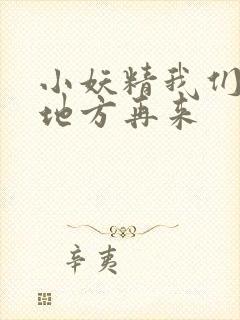 小妖精我们
地方再来
辛夷